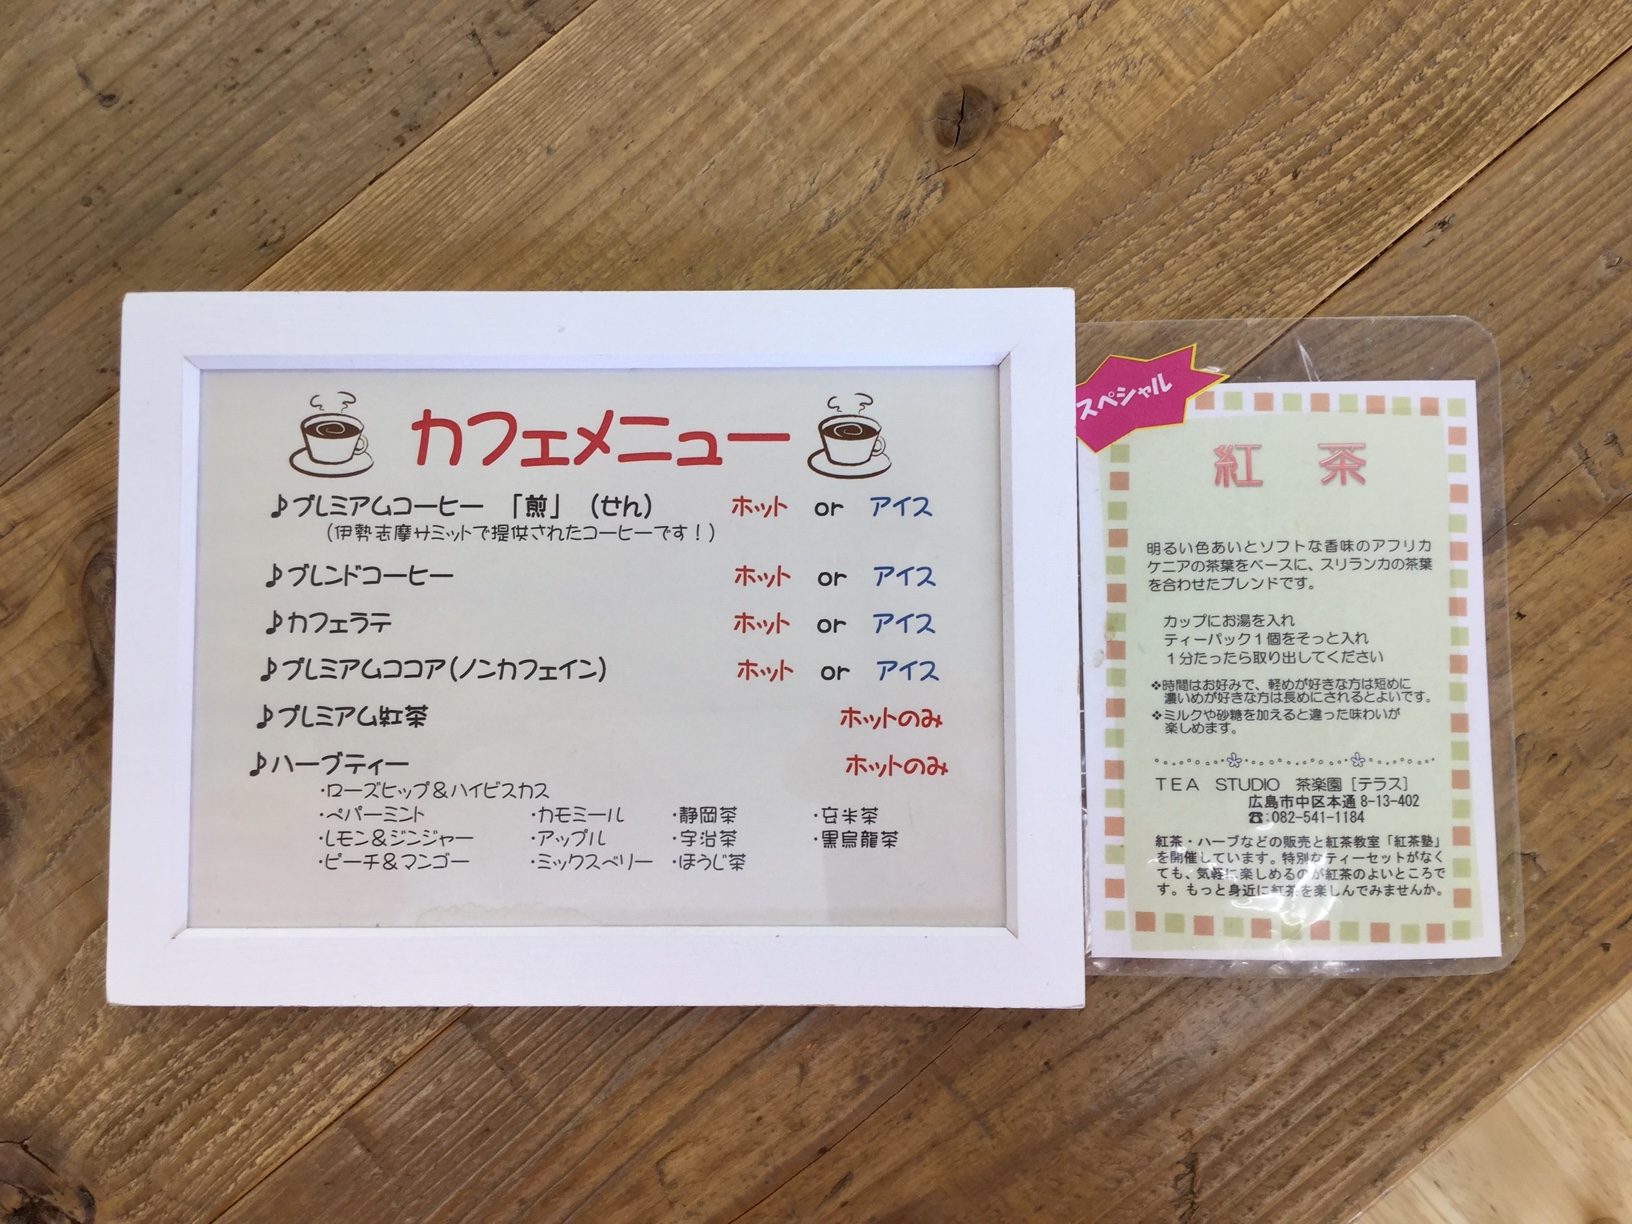 カフェメニュー
♪プレミアムコーヒー 「煎」（せん） ホット or アイス
（伊勢志摩サミットで提供されたコーヒーです！）
♪ブレンドコーヒー ホット or アイス
♪カフェラテ ホット or アイス
♪プレミアムココア(ノンカフェイン) ホット or アイス
♪プレミアム紅茶 ホットのみ
♪ハーブティー ホットのみ
・ローズヒップ＆ハイビスカス
・ペパーミント ・カモミール ・静岡茶 ・玄米茶
・レモン＆ジンジャー ・アップル ・宇治茶 ・黒烏龍茶
・ピーチ＆マンゴー ・ミックスベリー ・ほうじ茶
スペシャル
紅 茶
明るい色あいとソフトな香味のアフリカ
ケニアの茶葉をベースに、スリランカの茶葉
を合わせたブレンドです。
カップにお湯を入れ
ティーパック１個をそっと入れ
１分たったら取り出してください
❖時間はお好みで、軽めが好きな方は短めに
濃いめが好きな方は長めにされるとよいです。
❖ミルクや砂糖を加えると違った味わいが
楽しめます。
ＴＥＡ ＳＴＵＤＩＯ 茶楽園［テラス］
広島市中区本通 8-13-402
☎:082-541-1184
紅茶・ハーブなどの販売と紅茶教室「紅茶塾」
を開催しています。特別なティーセットがなく
ても、気軽に楽しめるのが紅茶のよいところで
す。もっと身近に紅茶を楽しんでみませんか。